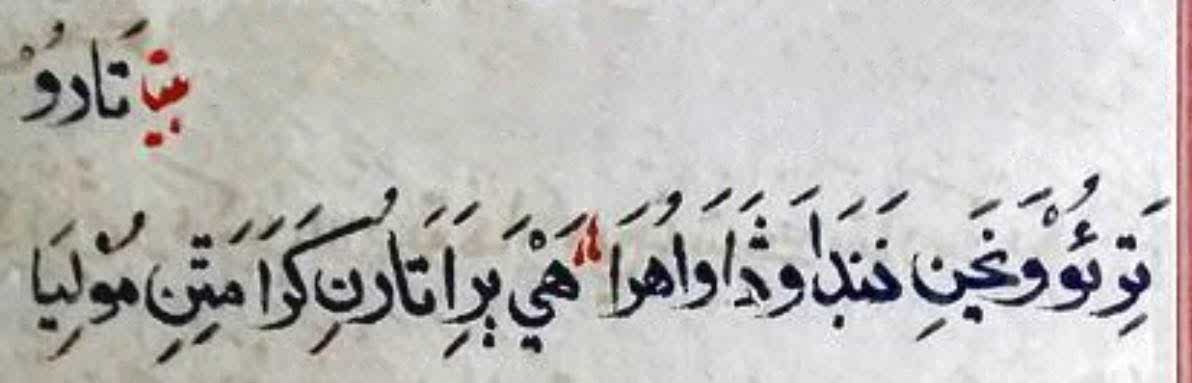 بيتا تَارُوْ
تَرِئُوْ وَنَجَنِ نَنَدَا وَڎَاوَاهُرَا هَيْ بَرِاَتَارَنِ كَرَامَتِنِ مُوْلِيَا